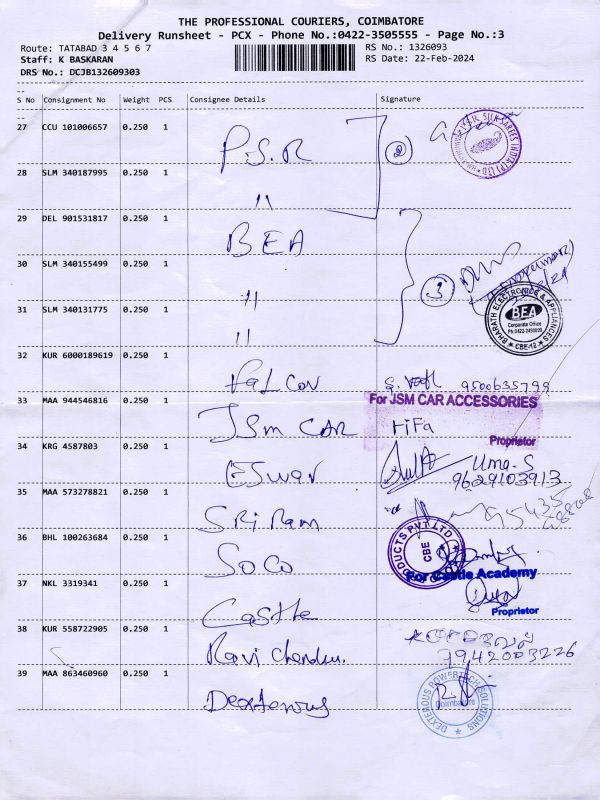 THE PROFESSIONAL COURIERS, COIMBATORE
Delivery Runsheet - PCX - Phone No.:0422-3505555 - Page No.:3
Route: TATABAD 3 4 5 6 7
RS No.: 1326093
Staff: K BASKARAN
RS Date: 22-Feb-2024
DRS No.: DCJB132609303
S No Consignment No Weight PCS Consignee Details Signature
27 CCU 101006657 0.250 1 P.S.R 2
28 SLM 340187995 0.250 1 "
29 DEL 901531817 0.250 1 BEA
30 SLM 340155499 0.250 1 " 3
31 SLM 340131775 0.250 1 "
BHARATH ELECTRONICS & APPLIANCES
BEA
Corporate Office
CBE-12
32 KUR 6000189619 0.250 1 Falcon 9500635799
33 MAA 944546816 0.250 1 JSM CAR
For JSM CAR ACCESSORIES
Proprietor
34 KRG 4587803 0.250 1 Eswar Uma.S
9629103913
35 MAA 573278821 0.250 1 Sri Ram
36 BHL 100263684 0.250 1 SoCo
DUCTS PVT LTD
CBE
37 NKL 3319341 0.250 1 Castle
For Castle Academy
Proprietor
38 KUR 558722905 0.250 1 Ravi Chandra.
7942003226
39 MAA 863460960 0.250 1 Dexterous
DEXTEROUS POWERTECH SOLUTIONS
Coimbatore